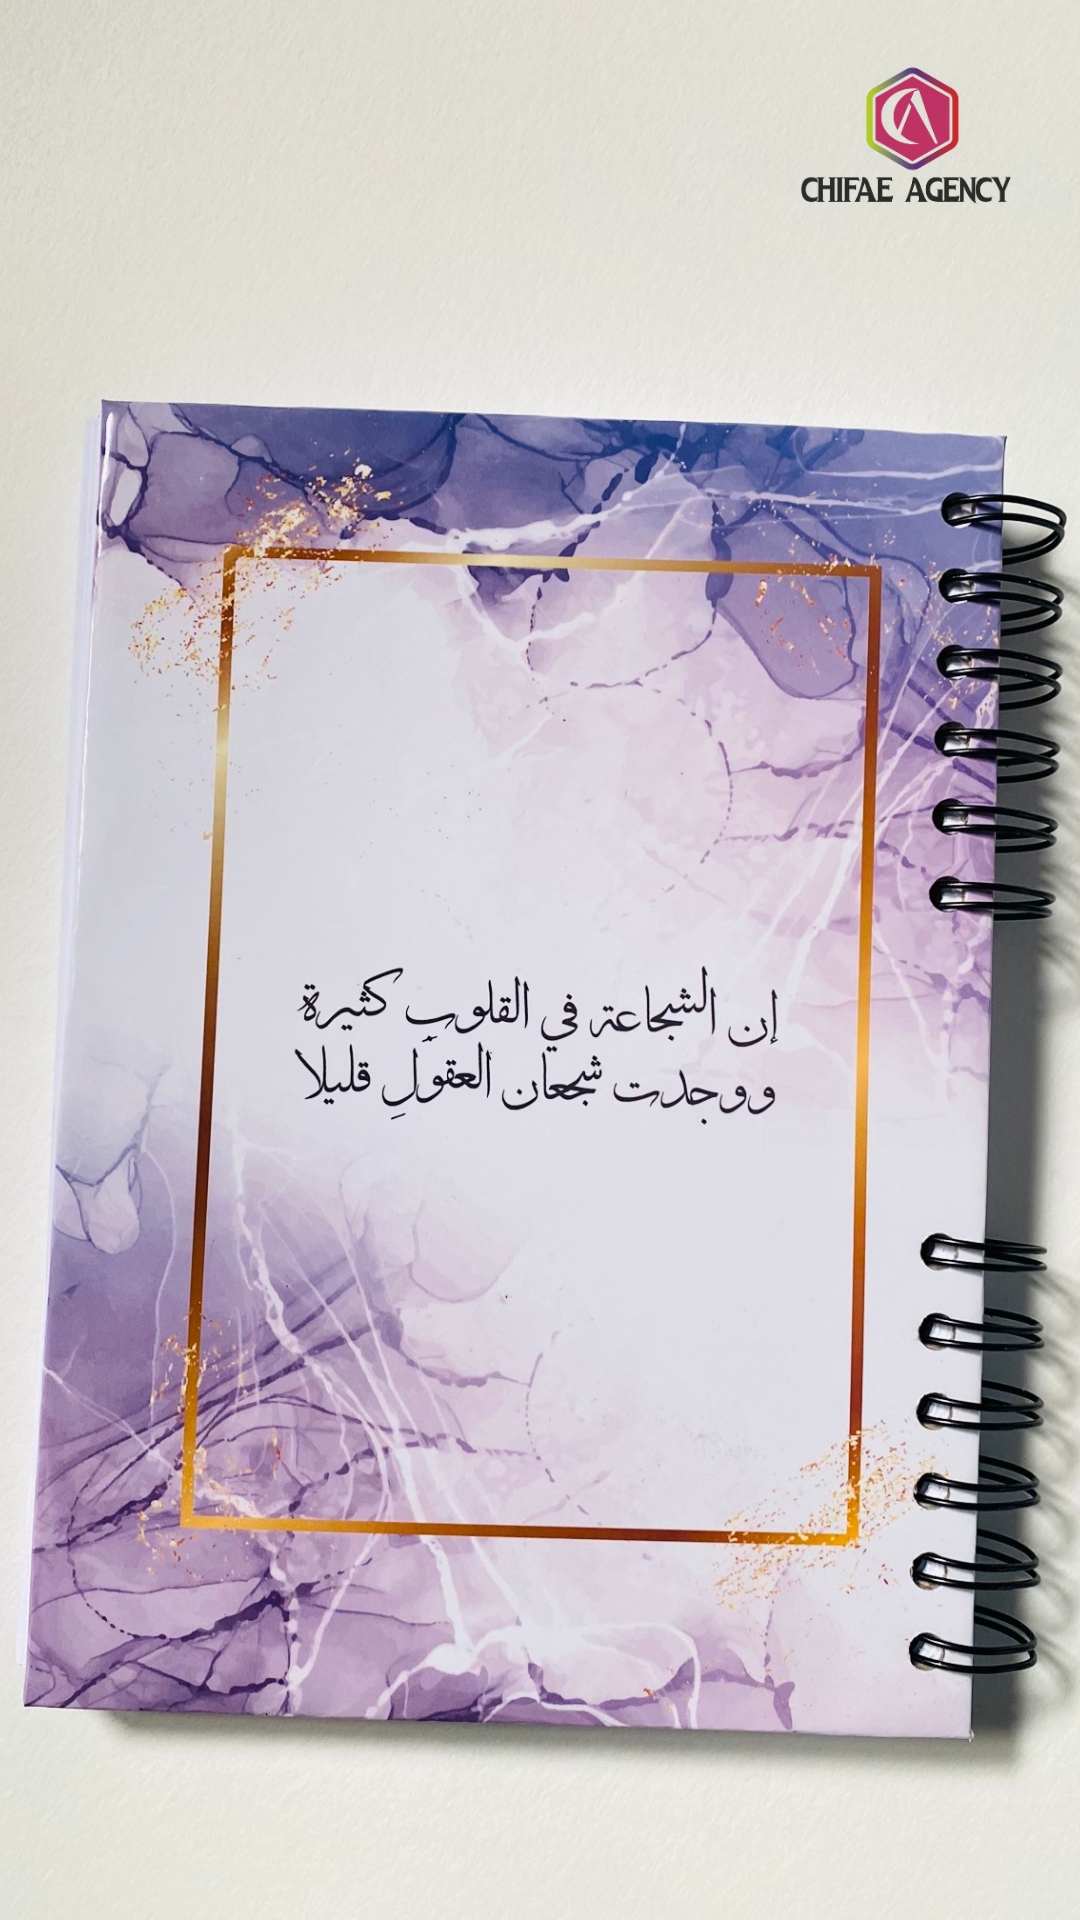 CHIFAE AGENCY
إن الشجاعة في القلوبِ كثيرة
ووجدت شجعان العقولِ قليلا